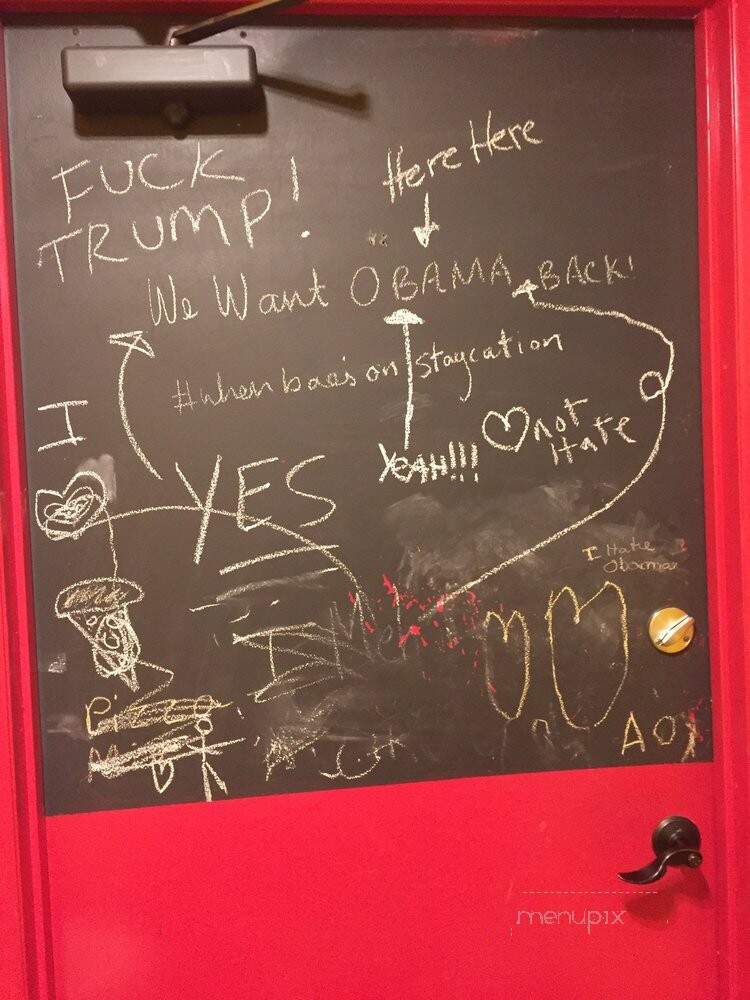 Here Here
FUCK
TRUMP!
We Want OBAMA BACK!
#when bae's on staycation
I
not
Hate
YEAH!!!
YES
I Hate
Obama
I
Pizza
menupix